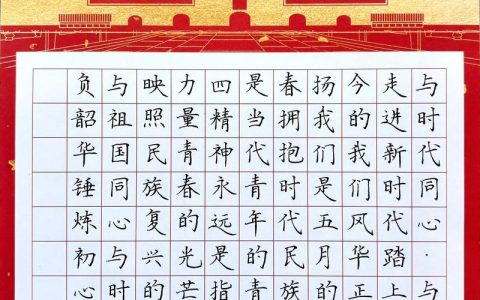 与时代同心·与
走进新时代踏上
今的我们风华正
扬我们是五月的
春拥抱时代民族
是当代青年的青
四精神永远是指
力量青春的光芒
映照民族复兴的
与祖国同心与时
负韶华锤炼初心